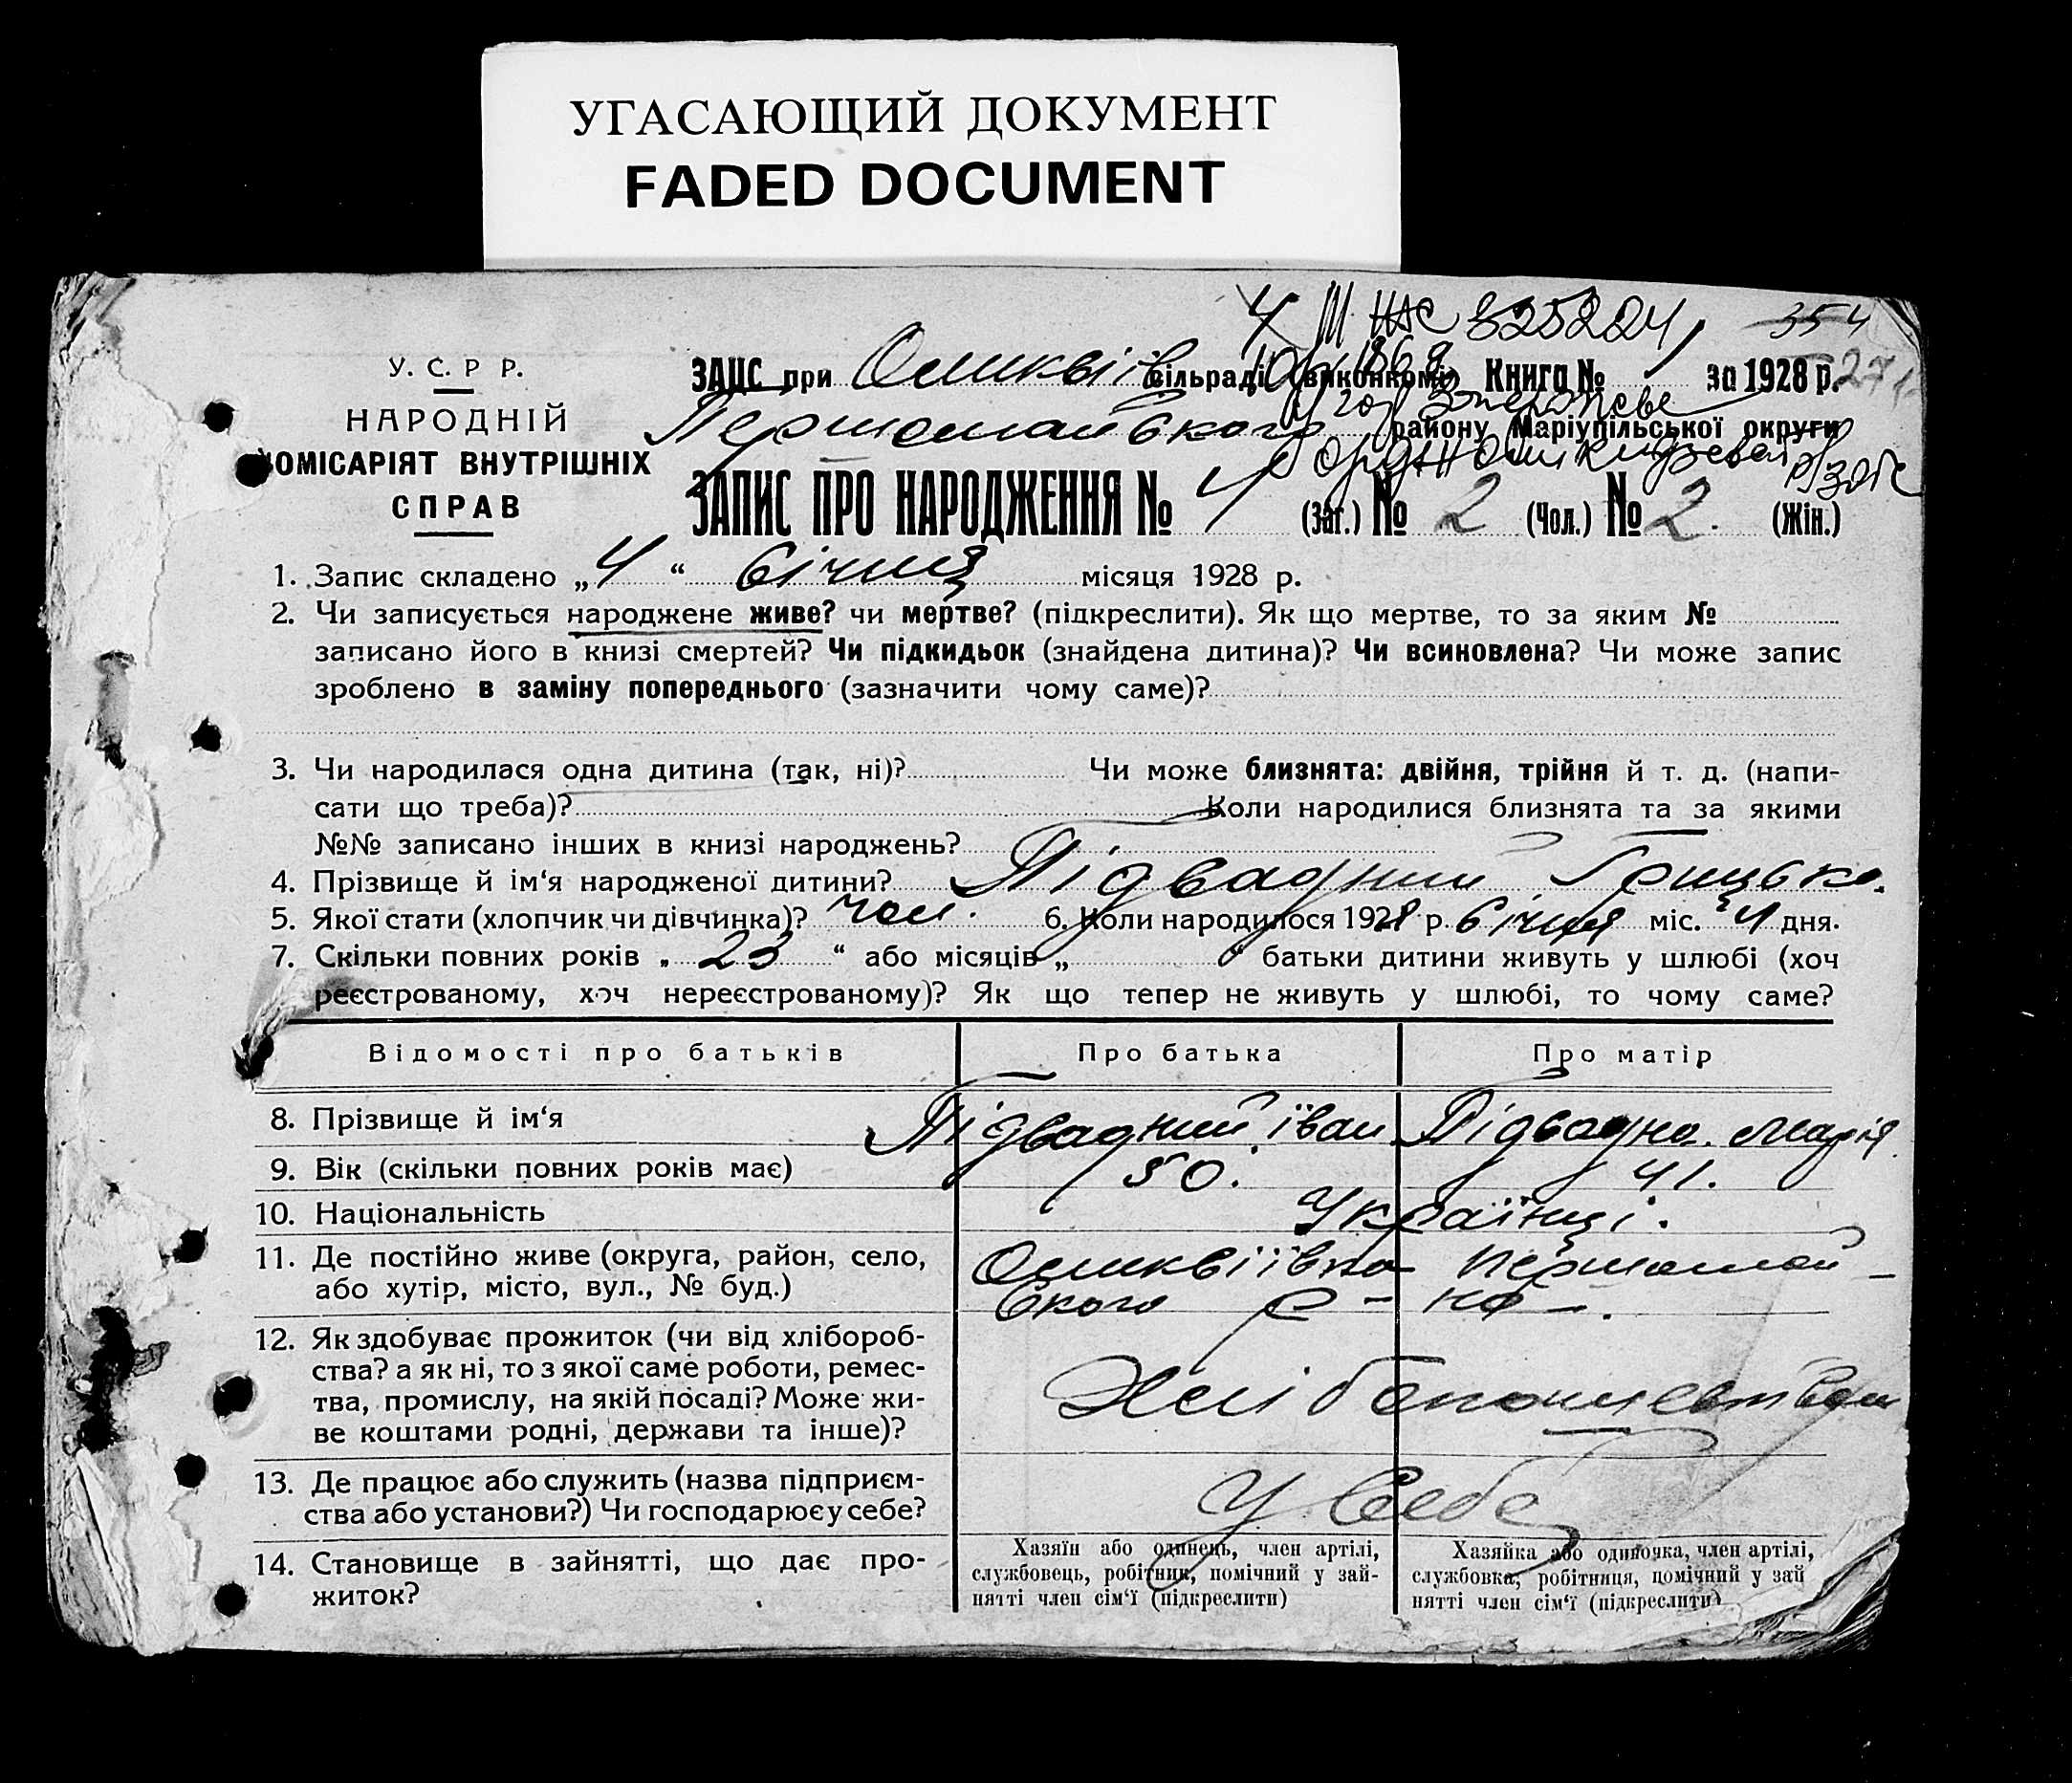 УГАСАЮЩИЙ ДОКУМЕНТ
FADED DOCUMENT
4 III НАС 825224, 354
У. С. Р Р.
НАРОДНІЙ
КОМІСАРІЯТ ВНУТРІШНІХ
СПРАВ
ЗАЦС при сільраді (виконкомі) Книга № за 1928 р. 271
Першомайського району Маріупільської округи
ЗАПИС ПРО НАРОДЖЕННЯ № 4 (Заг.) № 2 (Чол.) № 2. (Жін.)
1. Запис складено „4“ Січня місяця 1928 р.
2. Чи записується народжене живе? чи мертве? (підкреслити). Як що мертве, то за яким №
записано його в книзі смертей? Чи підкидьок (знайдена дитина)? Чи всиновлена? Чи може запис
зроблено в заміну попереднього (зазначити чому саме)?
3. Чи народилася одна дитина (так, ні)? Чи може близнята: двійня, трійня й т. д. (напи-
сати що треба)? Коли народилися близнята та за якими
№№ записано інших в книзі народжень?
4. Прізвище й ім‘я народженої дитини? Підвадний Грицько.
5. Якої стати (хлопчик чи дівчинка)? чол. 6. Коли народилося 1928 р. Січня міс. 4 дня.
7. Скільки повних років „23“ або місяців „ “ батьки дитини живуть у шлюбі (хоч
реєстрованому, хоч нереєстрованому)? Як що тепер не живуть у шлюбі, то чому саме?
Відомості про батьків Про батька Про матір
8. Прізвище й ім‘я Підвадний Іван Підвадна Марія
9. Вік (скільки повних років має) 50. 41.
10. Національність Українці.
11. Де постійно живе (округа, район, село,
або хутір, місто, вул., № буд.) Першомай-
ського р-на.
12. Як здобуває прожиток (чи від хлібороб-
ства? а як ні, то з якої саме роботи, ремес-
тва, промислу, на якій посаді? Може жи-
ве коштами родні, держави та інше)?
13. Де працює або служить (назва підприєм-
ства або установи?) Чи господарює у себе? У Себе
14. Становище в зайнятті, що дає про-
житок?
Хазяїн або одинець, член артілі,
службовець, робітник, помічний у зай-
нятті член сім‘ї (підкреслити)
Хазяйка або одиночка, член артілі,
службовка, робітниця, помічний у зай
нятті член сім‘ї (підкреслити)